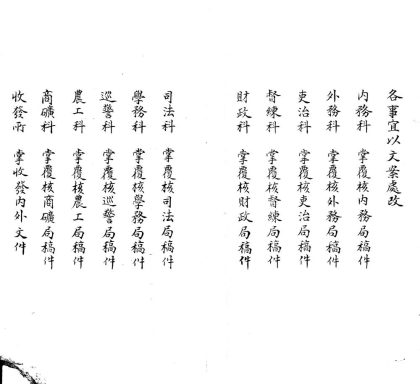 各事宜以文案處改
內務科　掌覆核內務局稿件
外務科　掌覆核外務局稿件
吏治科　掌覆核吏治局稿件
督練科　掌覆核督練局稿件
財政科　掌覆核財政局稿件
司法科　掌覆核司法局稿件
學務科　掌覆核學務局稿件
巡警科　掌覆核巡警局稿件
農工科　掌覆核農工局稿件
商礦科　掌覆核商礦局稿件
收發所　掌收發內外文件